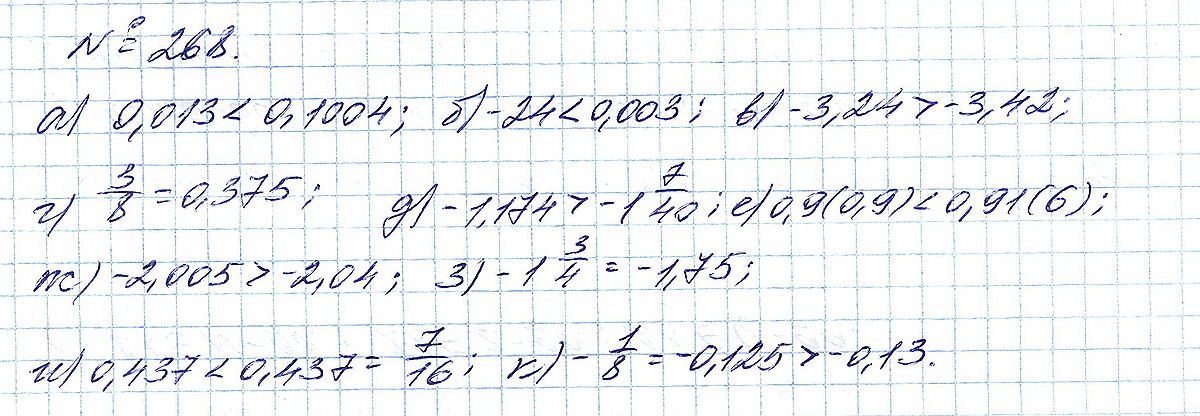 № 268.
а) 0,013 < 0,1004; б) -24 < 0,003; в) -3,24 > -3,42;
г) 3/8 = 0,375; д) -1,174 > -1 7/40; е) 0,9(0,9) < 0,91(6);
ж) -2,005 > -2,04; з) -1 3/4 = -1,75;
и) 0,437 < 0,437 = 7/16; к) - 1/8 = -0,125 > -0,13.